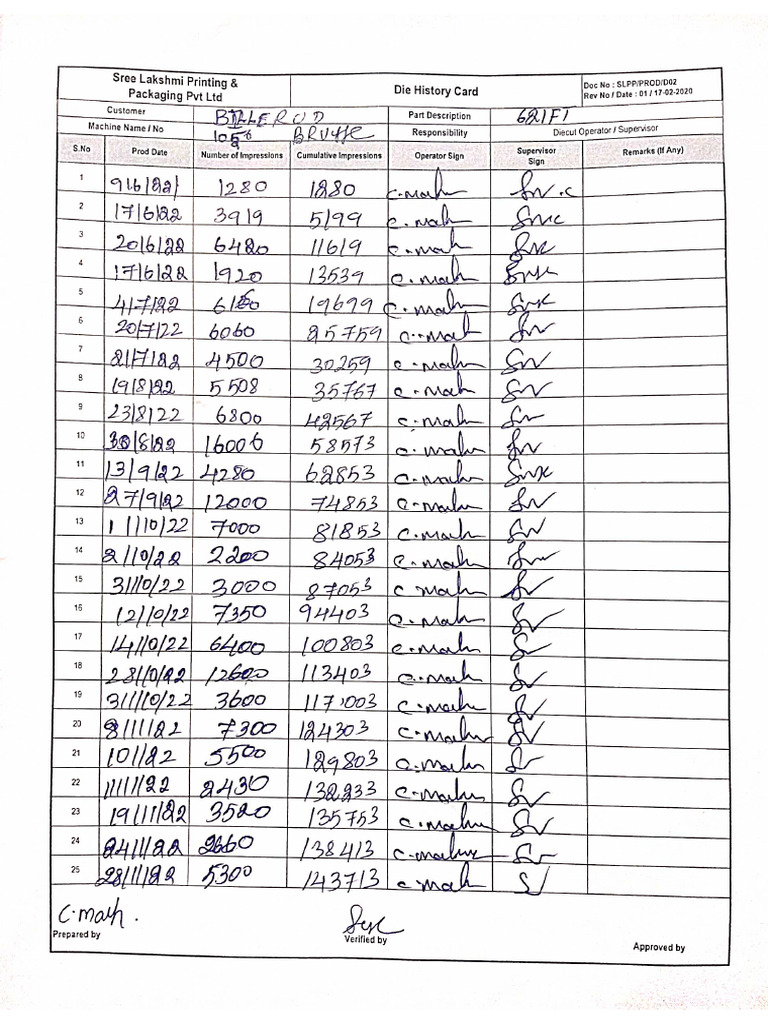 Sree Lakshmi Printing & Packaging Pvt Ltd Die History Card Doc No : SLPP/PROD/D02
Rev No / Date : 01 / 17-02-2020
Customer BILLERUD Part Description 621F1
Machine Name / No 105 BRUSSE Responsibility Diecut Operator / Supervisor
S.No Prod Date Number of Impressions Cumulative Impressions Operator Sign Supervisor Sign Remarks (If Any)
1 9/6/22 1280 1280 C.math
2 17/6/22 3919 5199 C.math
3 20/6/22 6420 11619 C.math
4 17/6/22 1920 13539 C.math
5 4/7/22 6160 19699 C.math
6 20/7/22 6060 25759 C.math
7 21/7/22 4500 30259 C.math
8 19/8/22 5508 35767 C.math
9 23/8/22 6800 42567 C.math
10 30/8/22 16006 58573 C.math
11 13/9/22 4280 62853 C.math
12 27/9/22 12000 74853 C.math
13 1/10/22 7000 81853 C.math
14 2/10/22 2200 84053 C.math
15 3/10/22 3000 87053 C math
16 12/10/22 7350 94403 C.math
17 14/10/22 6400 100803 C.math
18 28/10/22 12600 113403 C.math
19 31/10/22 3600 117003 C.math
20 8/11/22 7300 124303 C.math
21 10/11/22 5500 129803 C.math
22 11/11/22 2430 132233 C.math
23 19/11/22 3520 135753 C.math
24 24/11/22 2660 138413 C.math
25 28/11/22 5300 143713 C math
C.math.
Prepared by Verified by Approved by